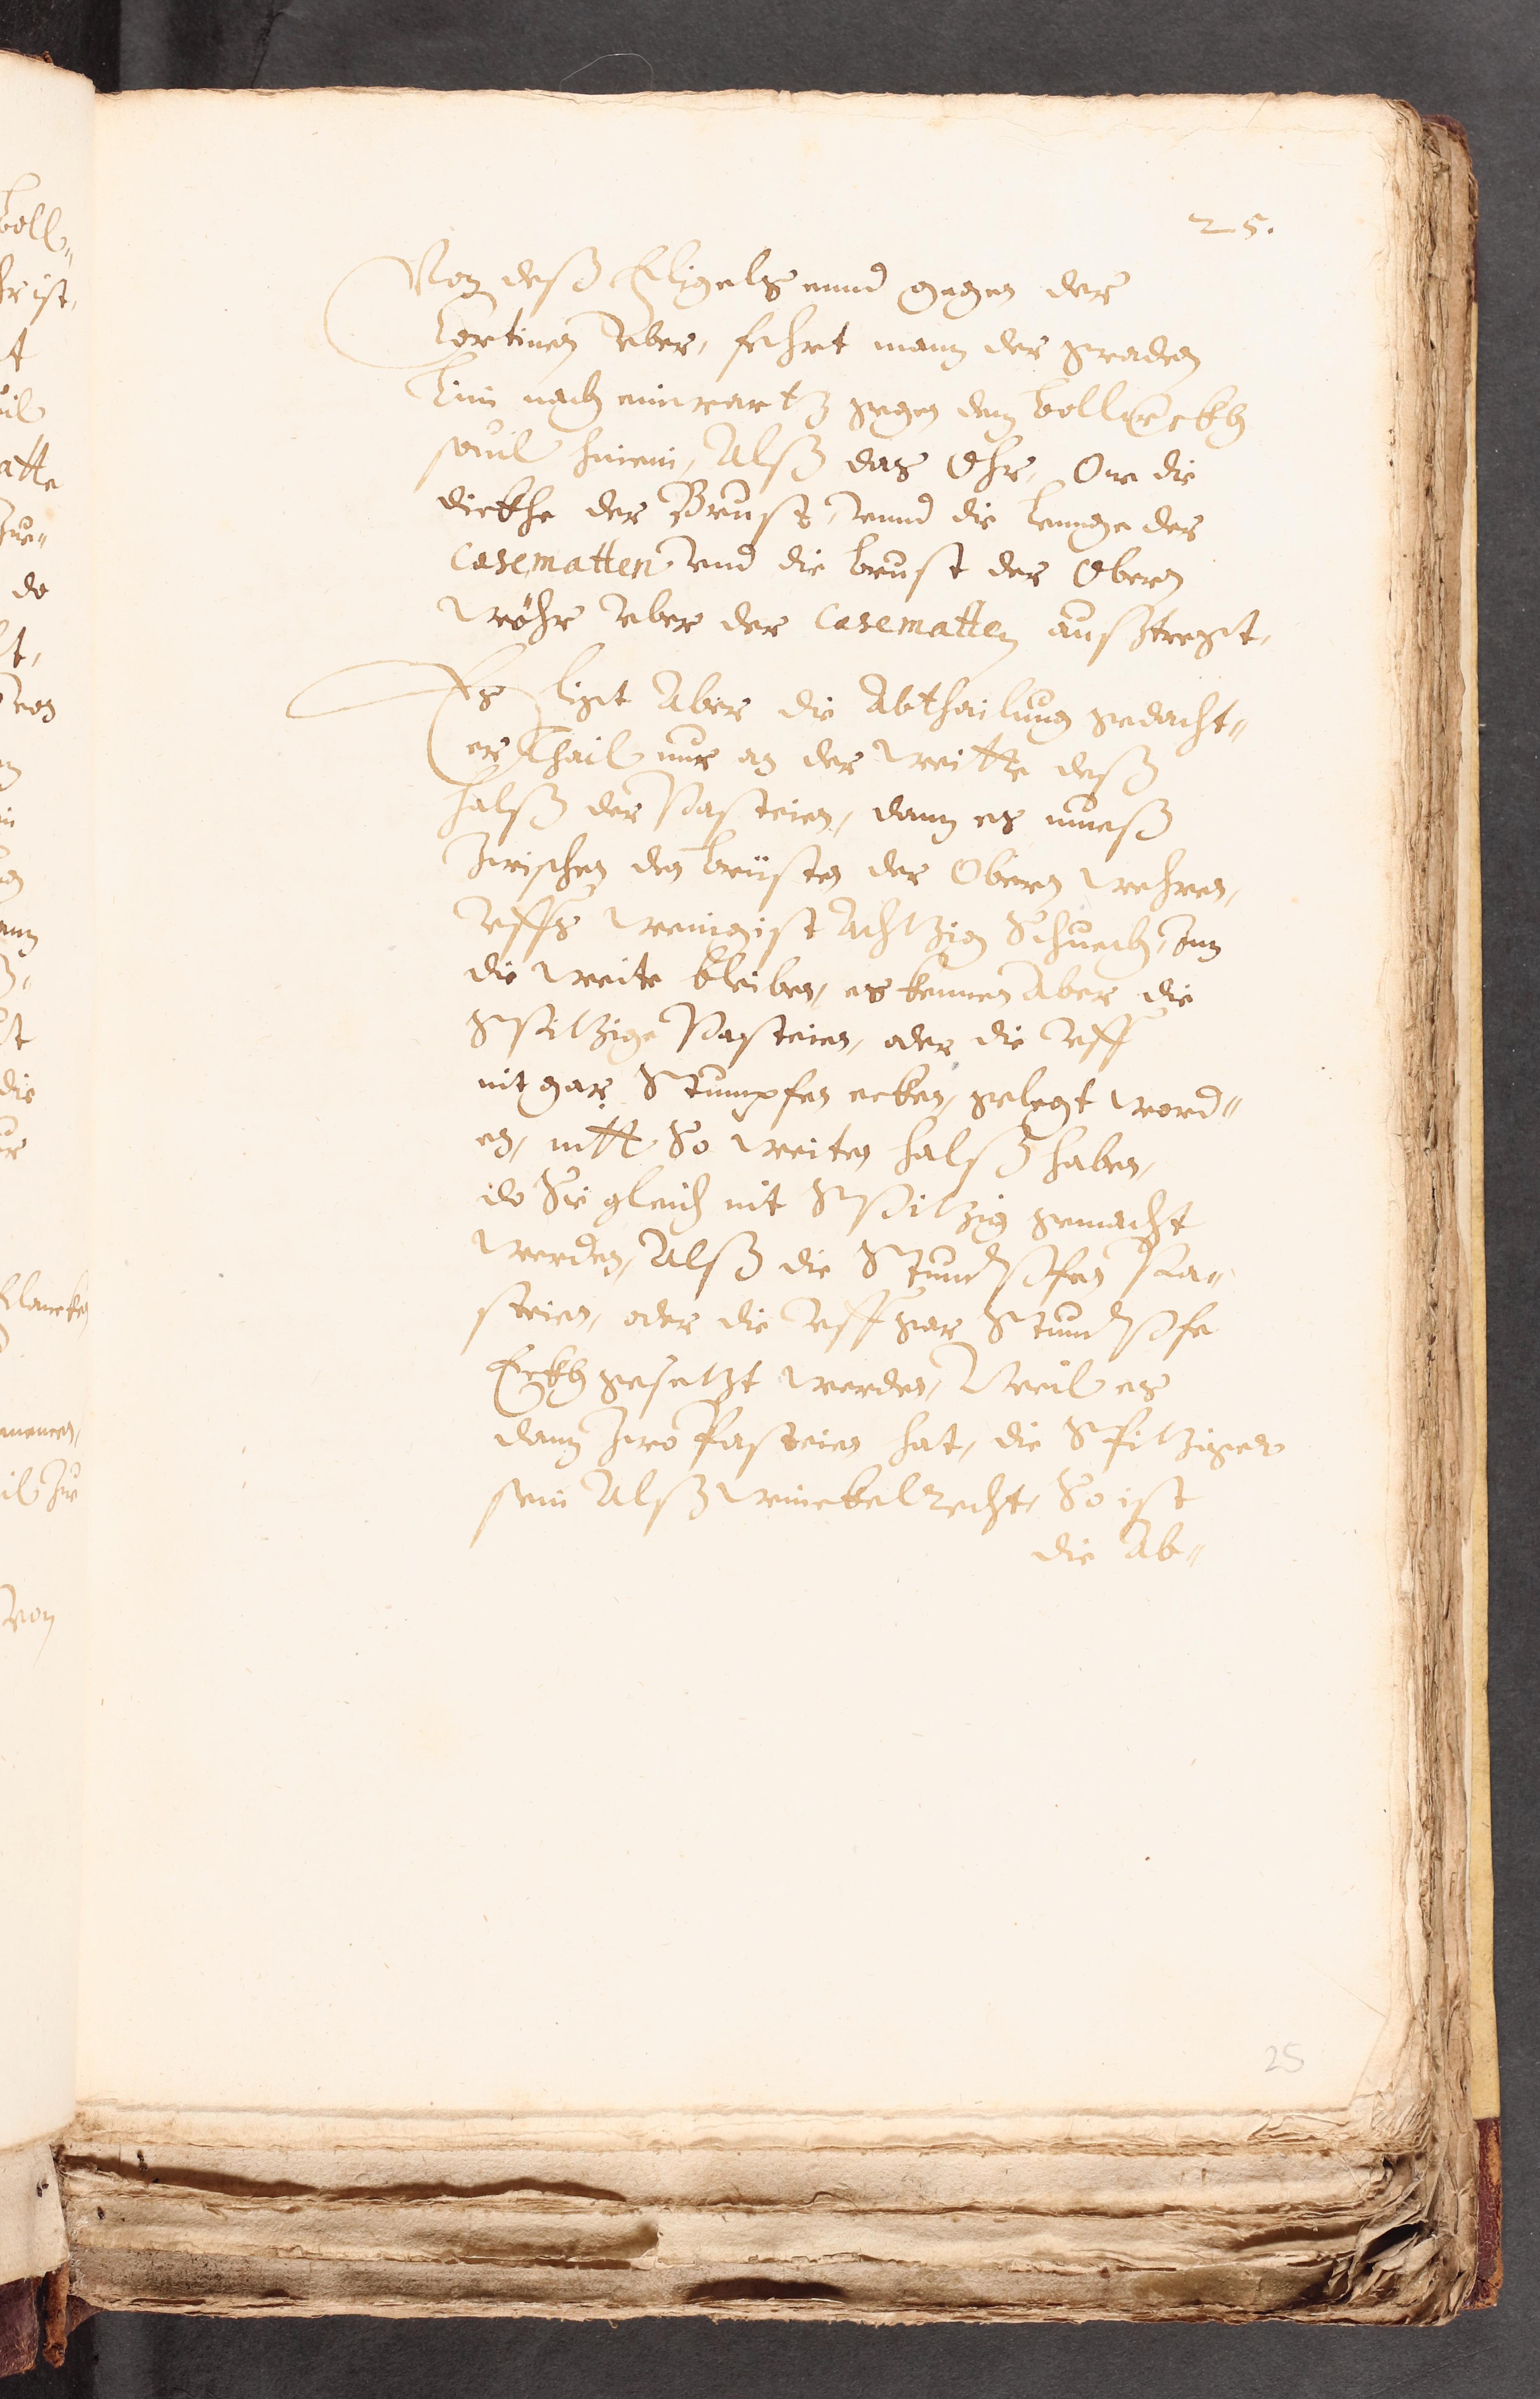 25.
Von deß Fligels ennd gegen der
Cortinen vber, fehrt mann der geraden
Lini nach einwartz gegen dem Bollwerckh
souil hinein, Alß das Ohr, Ore die
dickhe der Brust, vnnd die Lennge der
Casematten vnd die brust der Obern
Wöhr vber der Casematten außtregt,
Es ligt Aber die Abthailung gedacht-
er Thail nur an der Weitte deß
halß der Pasteien, dann es mueß
Zwischen den brüsten der Obern Wehren,
vffs Wenigist Achtzig Schuech, Inn
die Weite bleiben, es kennen Aber die
Spitzige Pasteien, oder die vff
nit gar Stumpfen ecken, gelegt Werd-
en, nitt So Weiten halß haben,
do Sie gleich nit Spitzig gemacht
Werden, Alß die Stumpfen Pa-
steien, oder die vff gar Stumpfe
Eckh gesetzt Werden, Weil es
dann Zwo Pasteien hat, die Spitziger
sein Alß Winckelrecht, So ist
die Ab-
25